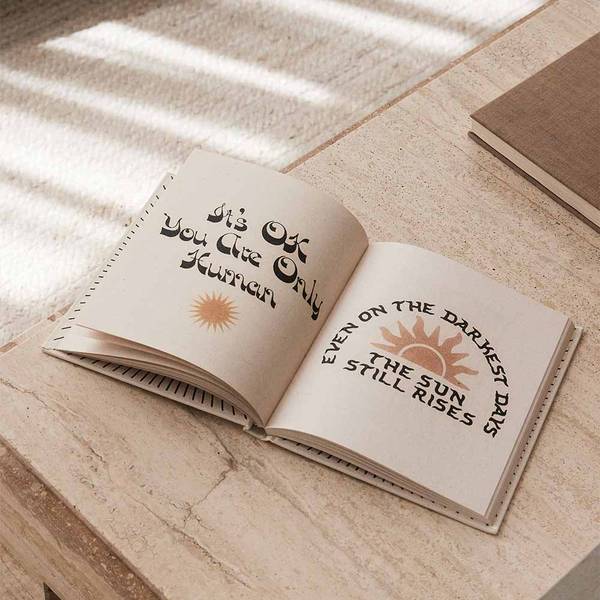 It's OK
You Are Only
Human
EVEN ON THE DARKEST DAYS
THE SUN
STILL RISES